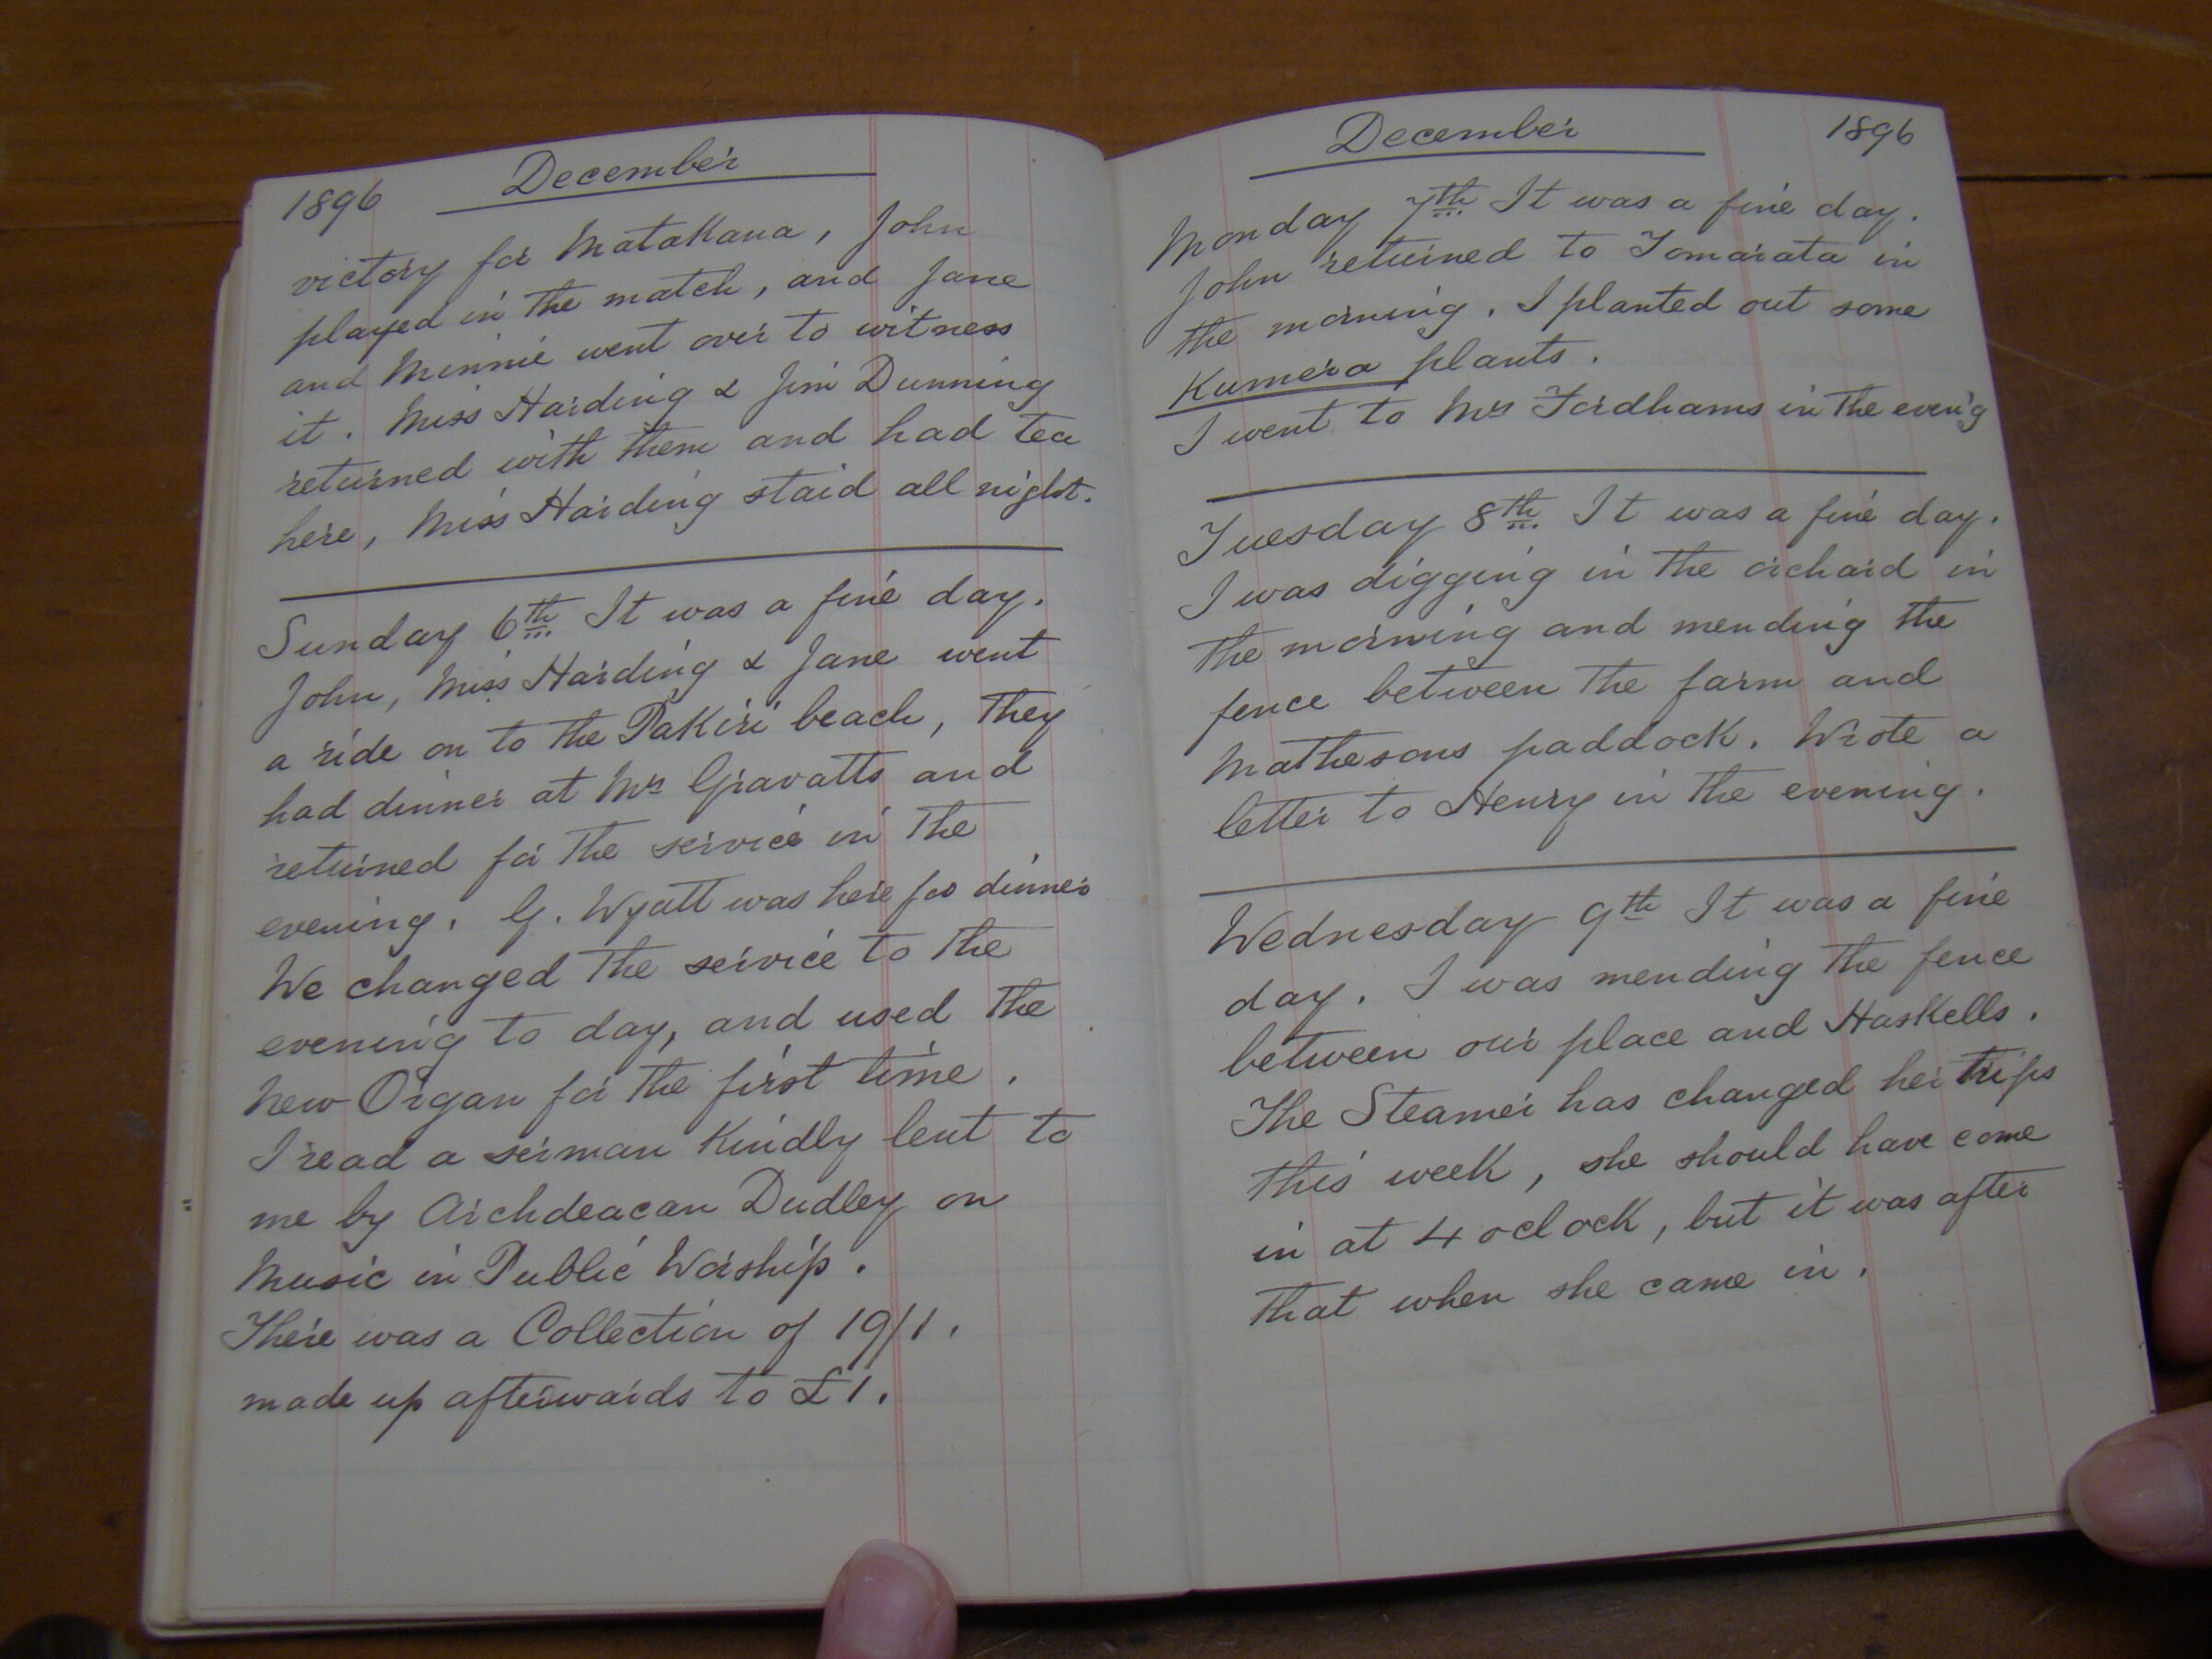 1896 December
victory for Matakana, John
played in the match, and Jane
and Minnie went over to witness
it. Miss Harding & Jim Dunning
returned with them and had tea
here, Miss Harding staid all night.
Sunday 6th It was a fine day.
John, Miss Harding & Jane went
a ride on to the Pakiri beach, they
had dinner at Mrs Gravatts and
returned for the service in the
evening. G. Wyatt was here for dinner
We changed the service to the
evening to day, and used the
new Organ for the first time.
I read a serman kindly lent to
me by Archdeacan Dudley on
Music in Public Worship.
There was a Collection of 19/1.
made up afterwards to £1.
December 1896
Monday 7th It was a fine day.
John returned to Tomarata in
the morning. I planted out some
Kumera plants.
I went to Mrs Fordhams in the even'g
Tuesday 8th. It was a fine day.
I was digging in the orchard in
the morning and mending the
fence between the farm and
Mathesons paddock. Wrote a
letter to Henry in the evening.
Wednesday 9th It was a fine
day. I was mending the fence
between our place and Haskells.
The Steamer has changed her trips
this week, she should have come
in at 4 oclock, but it was after
that when she came in.